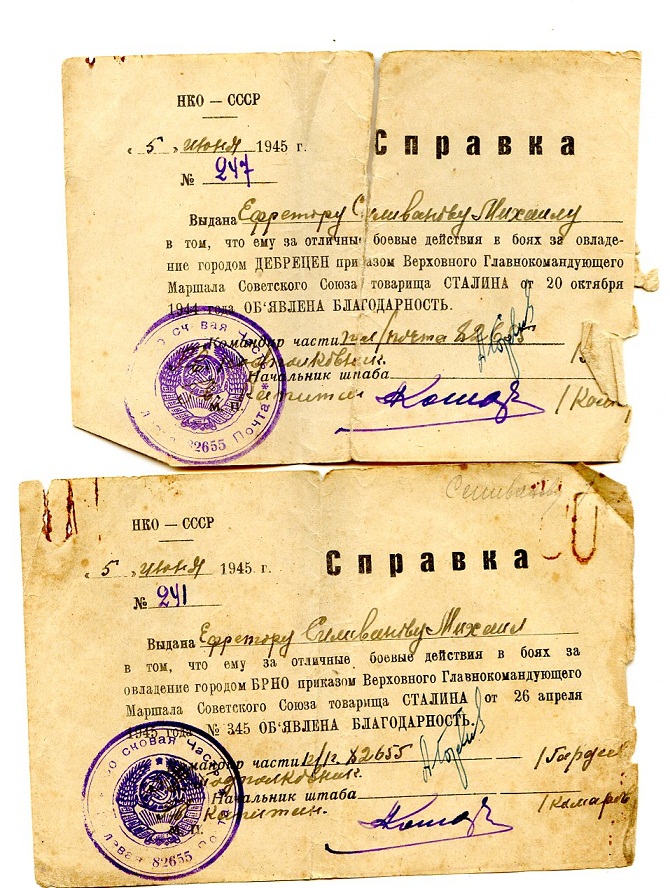 НКО — СССР
« 5 » июня 1945 г.
Справка
№ 247
Выдана Ефретору Силиванову Михаилу
в том, что ему за отличные боевые действия в боях за овладе-
ние городом ДЕБРЕЦЕН приказом Верховного Главнокомандующего
Маршала Советского Союза товарища СТАЛИНА от 20 октября
1944 года ОБ'ЯВЛЕНА БЛАГОДАРНОСТЬ.
Командир части пол/почта 82655
подполковник.
Начальник штаба
капитан
М. П.
82655 Почта
Селиванов
НКО — СССР
« 5 » июня 1945 г.
Справка
№ 241
Выдана Ефретору Силиванову Михаил
в том, что ему за отличные боевые действия в боях за
овладение городом БРНО приказом Верховного Главнокомандующего
Маршала Советского Союза товарища СТАЛИНА от 26 апреля
1945 года № 345 ОБ'ЯВЛЕНА БЛАГОДАРНОСТЬ.
Командир части п/п 82655 /Гордеев
подполковник.
Начальник штаба /Комаров
Капитан.
М. П.
82655